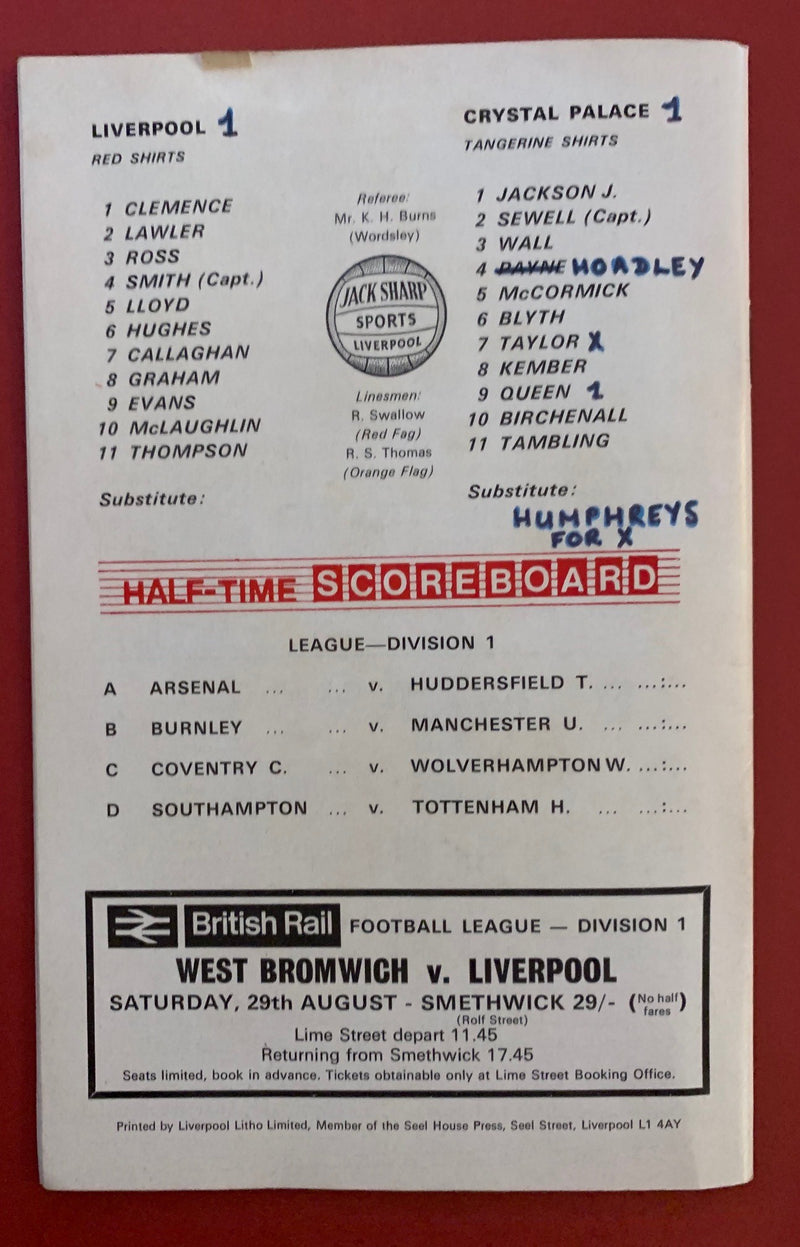 LIVERPOOL 1
RED SHIRTS
1 CLEMENCE
2 LAWLER
3 ROSS
4 SMITH (Capt.)
5 LLOYD
6 HUGHES
7 CALLAGHAN
8 GRAHAM
9 EVANS
10 McLAUGHLIN
11 THOMPSON
Substitute:
Referee:
Mr. K. H. Burns
(Wordsley)
JACK SHARP
SPORTS
LIVERPOOL
Linesmen:
R. Swallow
(Red Fag)
R. S. Thomas
(Orange Flag)
CRYSTAL PALACE 1
TANGERINE SHIRTS
1 JACKSON J.
2 SEWELL (Capt.)
3 WALL
4 PAYNE HOADLEY
5 McCORMICK
6 BLYTH
7 TAYLOR X
8 KEMBER
9 QUEEN 1
10 BIRCHENALL
11 TAMBLING
Substitute:
HUMPHREYS
FOR X
HALF-TIME SCOREBOARD
LEAGUE—DIVISION 1
A ARSENAL ... ... v. HUDDERSFIELD T. ... ...:...
B BURNLEY ... ... v. MANCHESTER U. ... ...:...
C COVENTRY C. ... v. WOLVERHAMPTON W. ...:...
D SOUTHAMPTON ... v. TOTTENHAM H. ... ...:...
British Rail FOOTBALL LEAGUE — DIVISION 1
WEST BROMWICH v. LIVERPOOL
SATURDAY, 29th AUGUST - SMETHWICK 29/- (No half fares)
(Rolf Street)
Lime Street depart 11.45
Returning from Smethwick 17.45
Seats limited, book in advance. Tickets obtainable only at Lime Street Booking Office.
Printed by Liverpool Litho Limited, Member of the Seel House Press, Seel Street, Liverpool L1 4AY